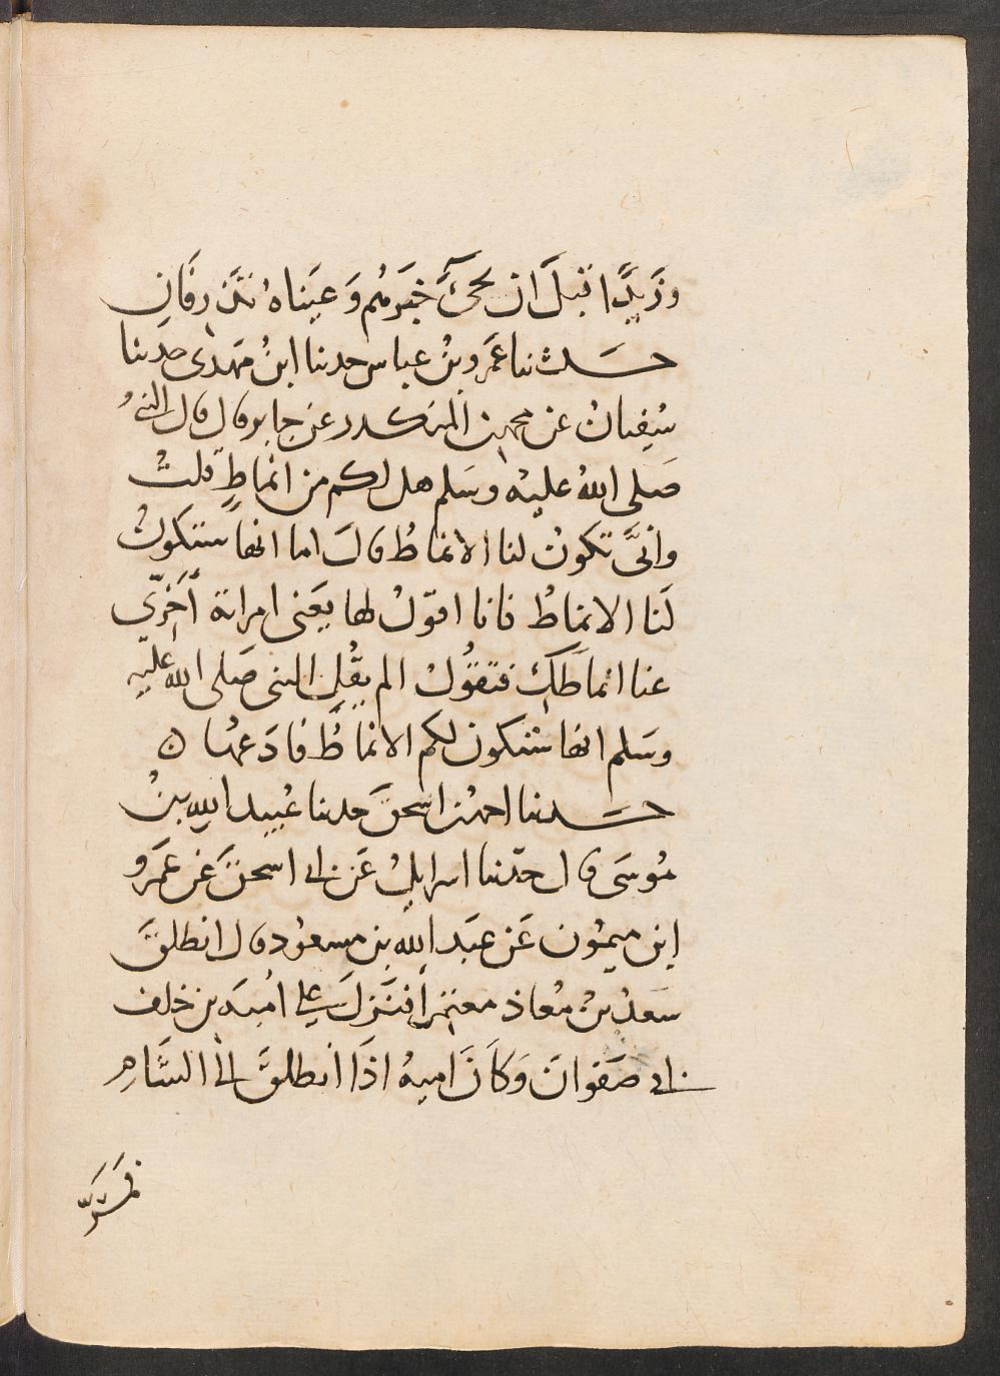 وزَيدًا قبلَ ان يجئَ خبَرهُم وَعيَناهُ تذرِفَانِ
حدثنا عَمَرو بنُ عباس حدثنا ابنُ مَهدى حدثنا
سُفيانُ عن محمد بن المنكدر عن جابر قال قال النبىُ
صَلى اللهُ عليْه وسَلم هل لكم من انماطٍ قلتُ
وانىَّ تكونُ لنا الانماطُ قالَ اما انها ستكونُ
لَنا الانماطُ فانا اقولُ لها يعَنى امراتهَ أخِّرى
عنا انماطَكِ فتقوُلُ الم يقُلِ النبى صَلى الله عليَه
وسَلم انها ستكون لكم الانماطُ فادَعهُا ه
حدثنا احمد بن اسحقَ حدثنا عُبيد اللهِ بنُ
مُوسَى قال حدّثنا اسرايلُ عَن ابى اسحقَ عَن عمَرو
ابن ميمُون عَن عبَد اللهِ بن مسعُود قال انطلقَ
سَعدُ بنُ مُعاذ معتمِرًا فنَزلَ على اُميهَ بن خلف
ابى صَفوانَ وَكاَنَ اميهُ اذَا انطلقَ الىَ الشَامِ
فمَرَّ